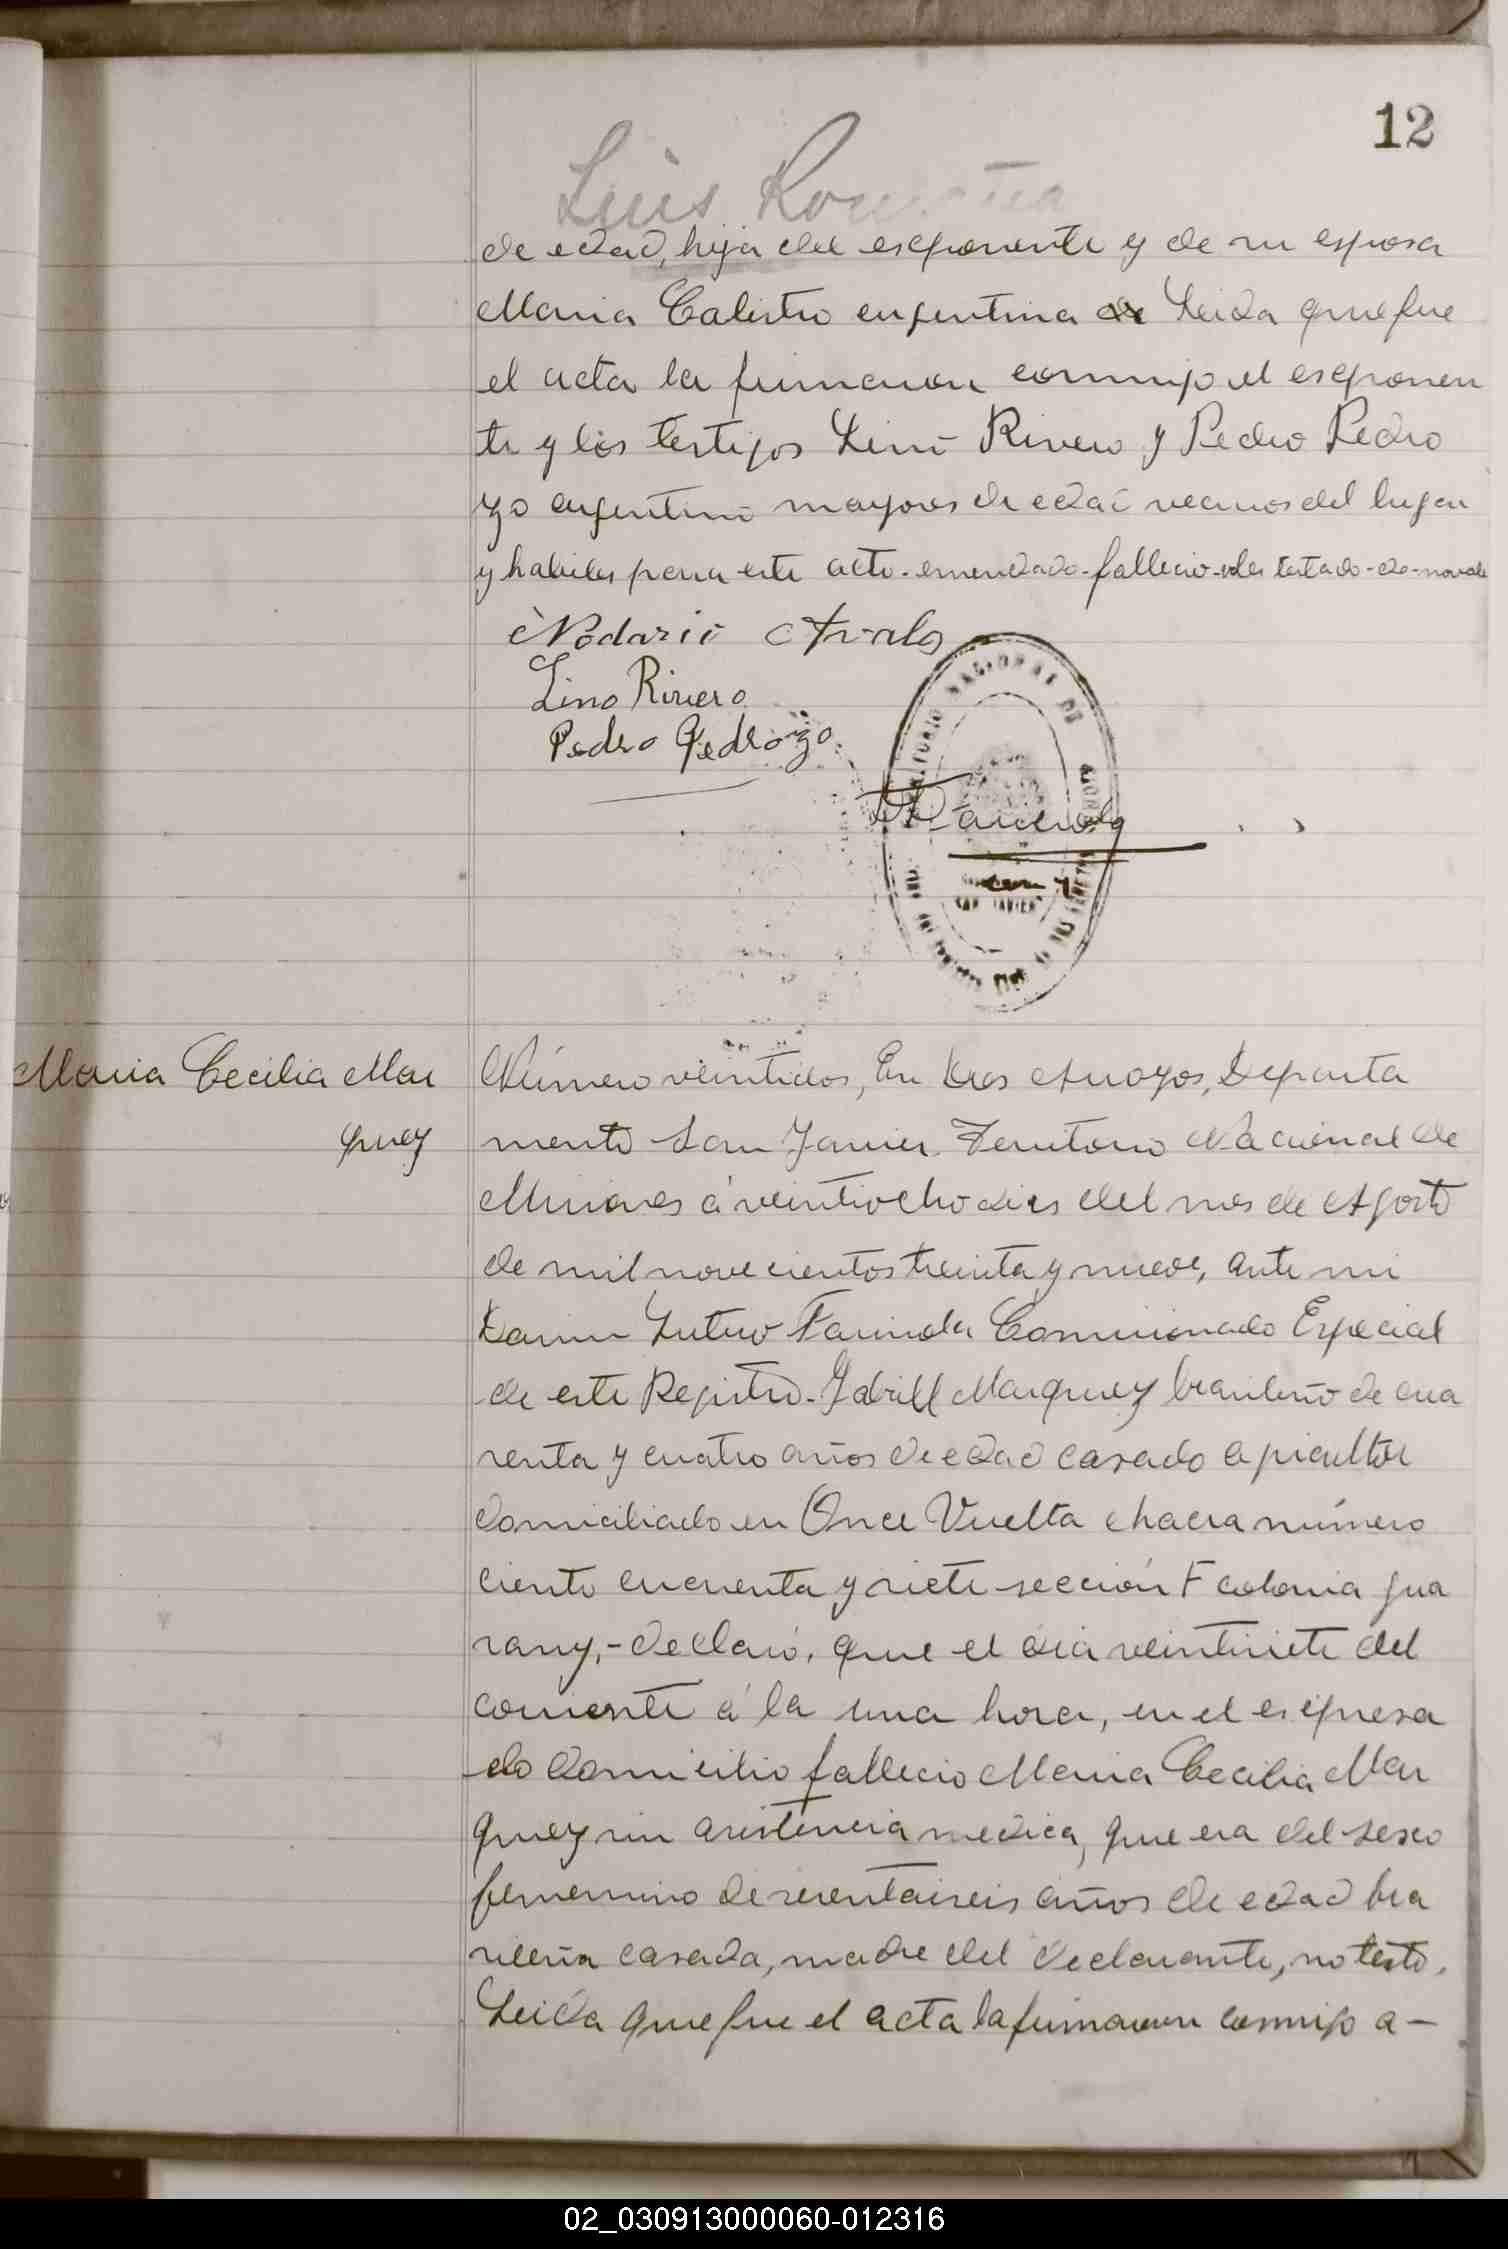 12
Luis
de edad, hija del esponente y de su esposa
Maria Calistro argentina de Leida que fue
el acta la firmaron conmigo el esponen
te y los testigos Lino Rivero y Pedro Pedro
zo argentino mayores de edad vecinos del lugar
y habiles para este acto - enmendado - fallecio - vale testado - do - no vale
Nodario Avalo
Lino Rivero
Pedro Pedrozo
SAN JAVIER
Maria Cecilia Mar
quez
Número veintidos, En tres Arroyos, Departa
mento San Javier. Territorio Nacional de
Misiones á veintiocho dias del mes de Agosto
de mil novecientos treinta y nueve, ante mi
Lutero Comisionado Especial
de este Registro - Gabriel Marquez brasileño de cua
renta y cuatro años de edad casado apicultor
domiciliado en Once Vuelta chacra número
ciento cincuenta y siete sección F colonia gua
rany, - declaró, que el dia veintisiete del
corriente á la una hora, en el espresa
do domicilio fallecio Maria Cecilia Mar
quez sin asistencia medica, que era del sexo
femenino de sesentaiseis años de edad bra
sileña casada, madre del declarante, no testo.
Leida que fue el acta la firmaron conmigo a -
02_030913000060-012316